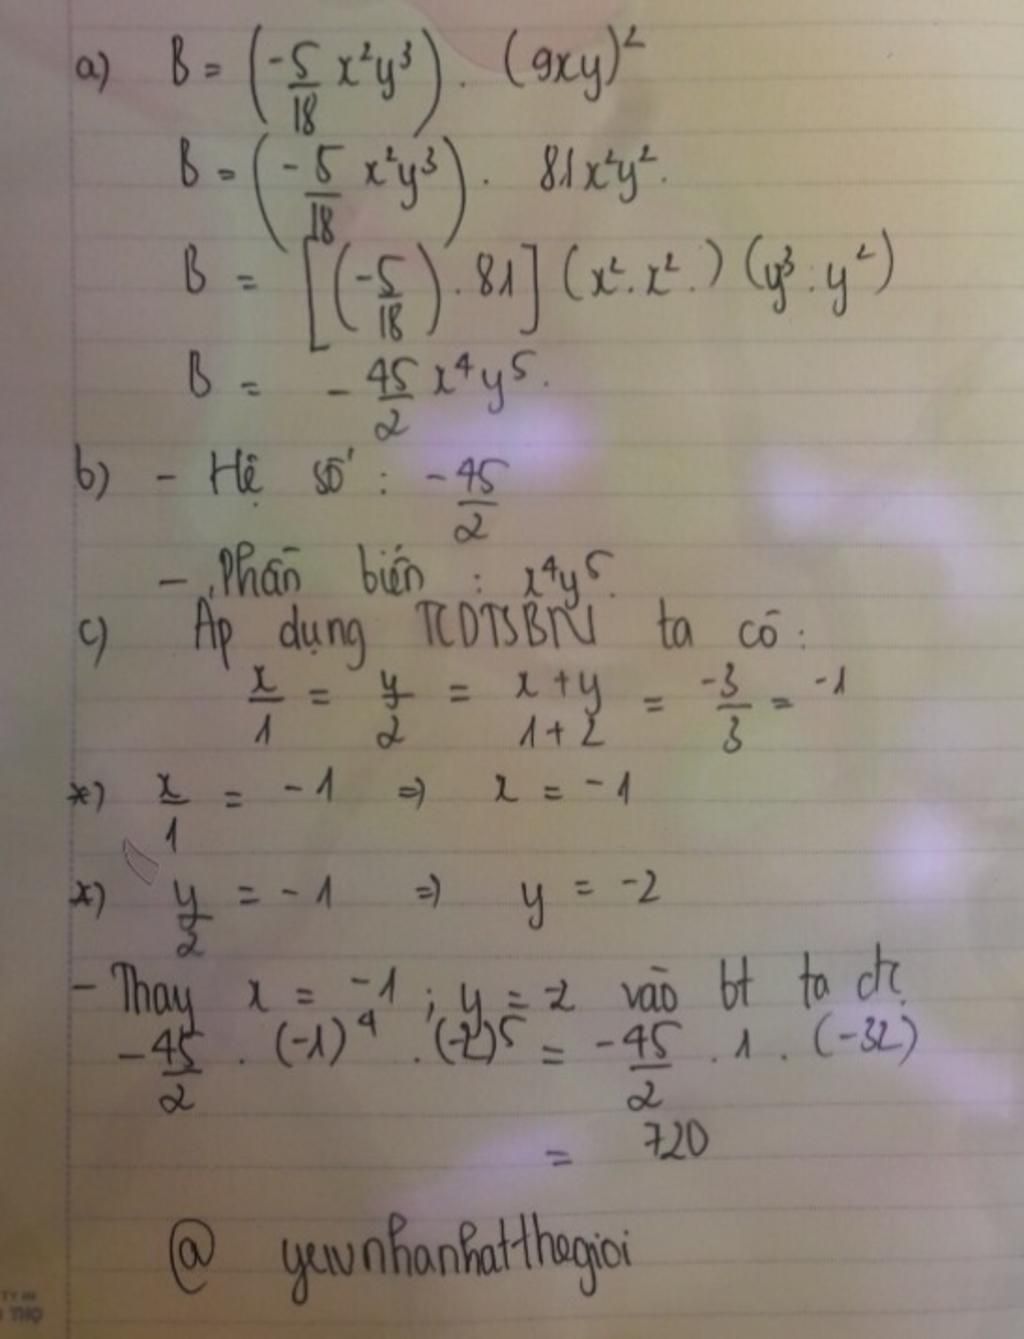 a) B = (-5/18 x²y³) . (9xy)²
B = (-5/18 x²y³) . 81x²y².
B = [(-5/18) . 81] (x².x².) (y³.y²)
B = -45/2 x⁴y⁵.
b) - Hệ số : -45/2
- Phần biến : x⁴y⁵.
c) Áp dụng TCDTSBN ta có :
x/1 = y/2 = x+y/1+2 = -3/3 = -1
*) x/1 = -1 => x = -1
*) y/2 = -1 => y = -2
- Thay x = -1 ; y = 2 vào bt ta đc
-45/2 . (-1)⁴ . (-2)⁵ = -45/2 . 1 . (-32)
= 720
@ yewnhanhatthegioi
TY IN
THỌ